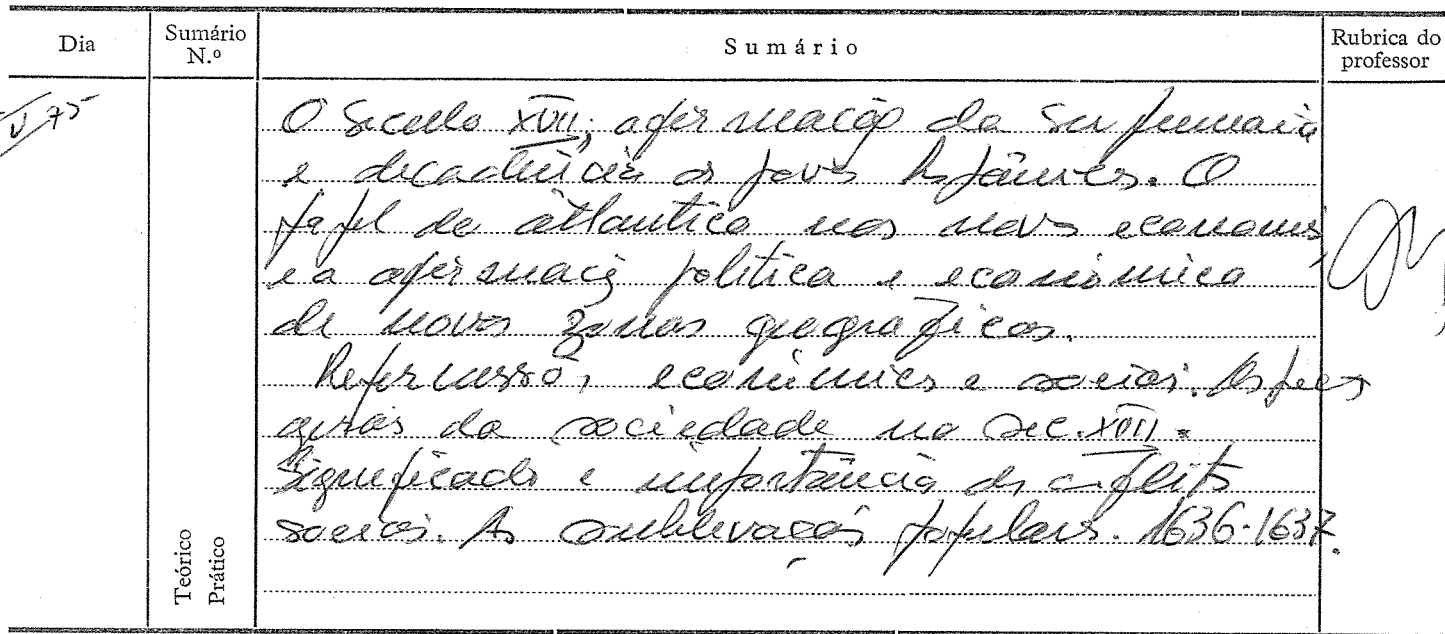 Dia
Sumário N.º
Sumário
Rubrica do professor
V 75
O Seculo XVII; afirmação da
e decadência os povos. O
papel do atlantico nas novas economias
e a afirmação politica e económica
de novas zonas geograficas.
Repercussões economicas e sociais. Aspectos
gerais da sociedade no sec. XVII.
Significado e importância dos conflitos
sociais. As sublevações populares. 1636-1637.
Teórico
Prático